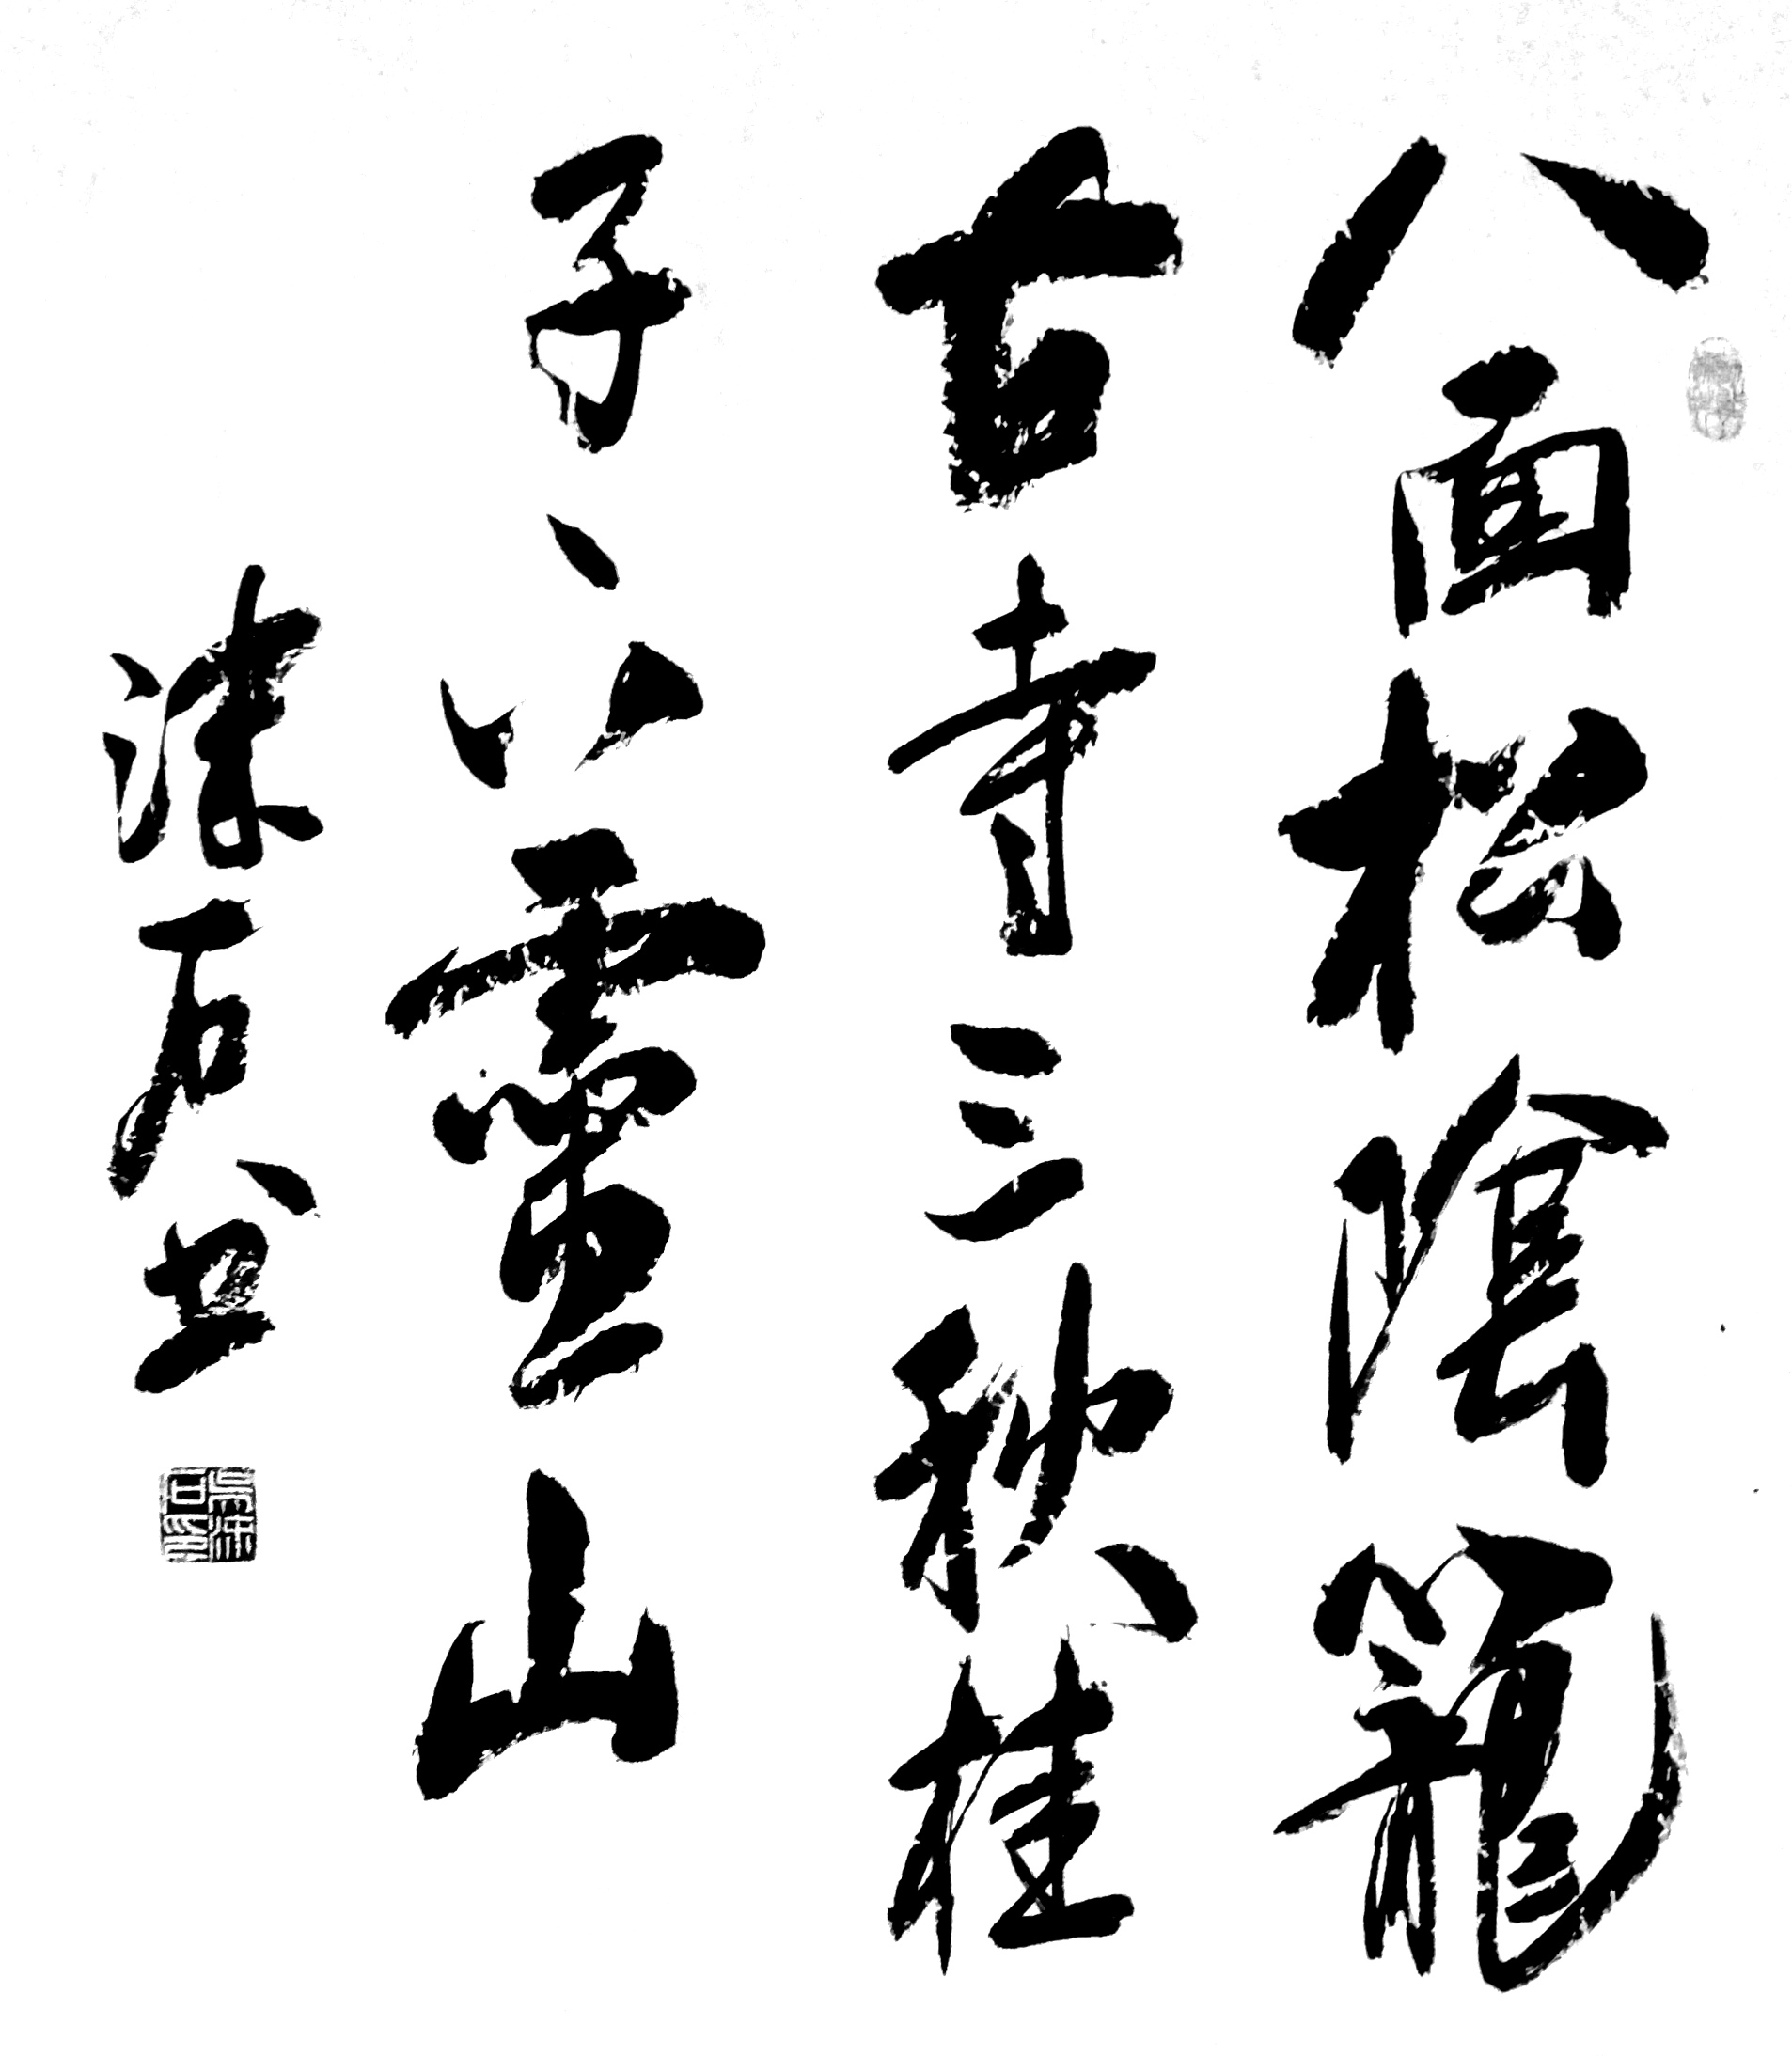 八面松陰籠
古寺三秋桂
子下靈山
石